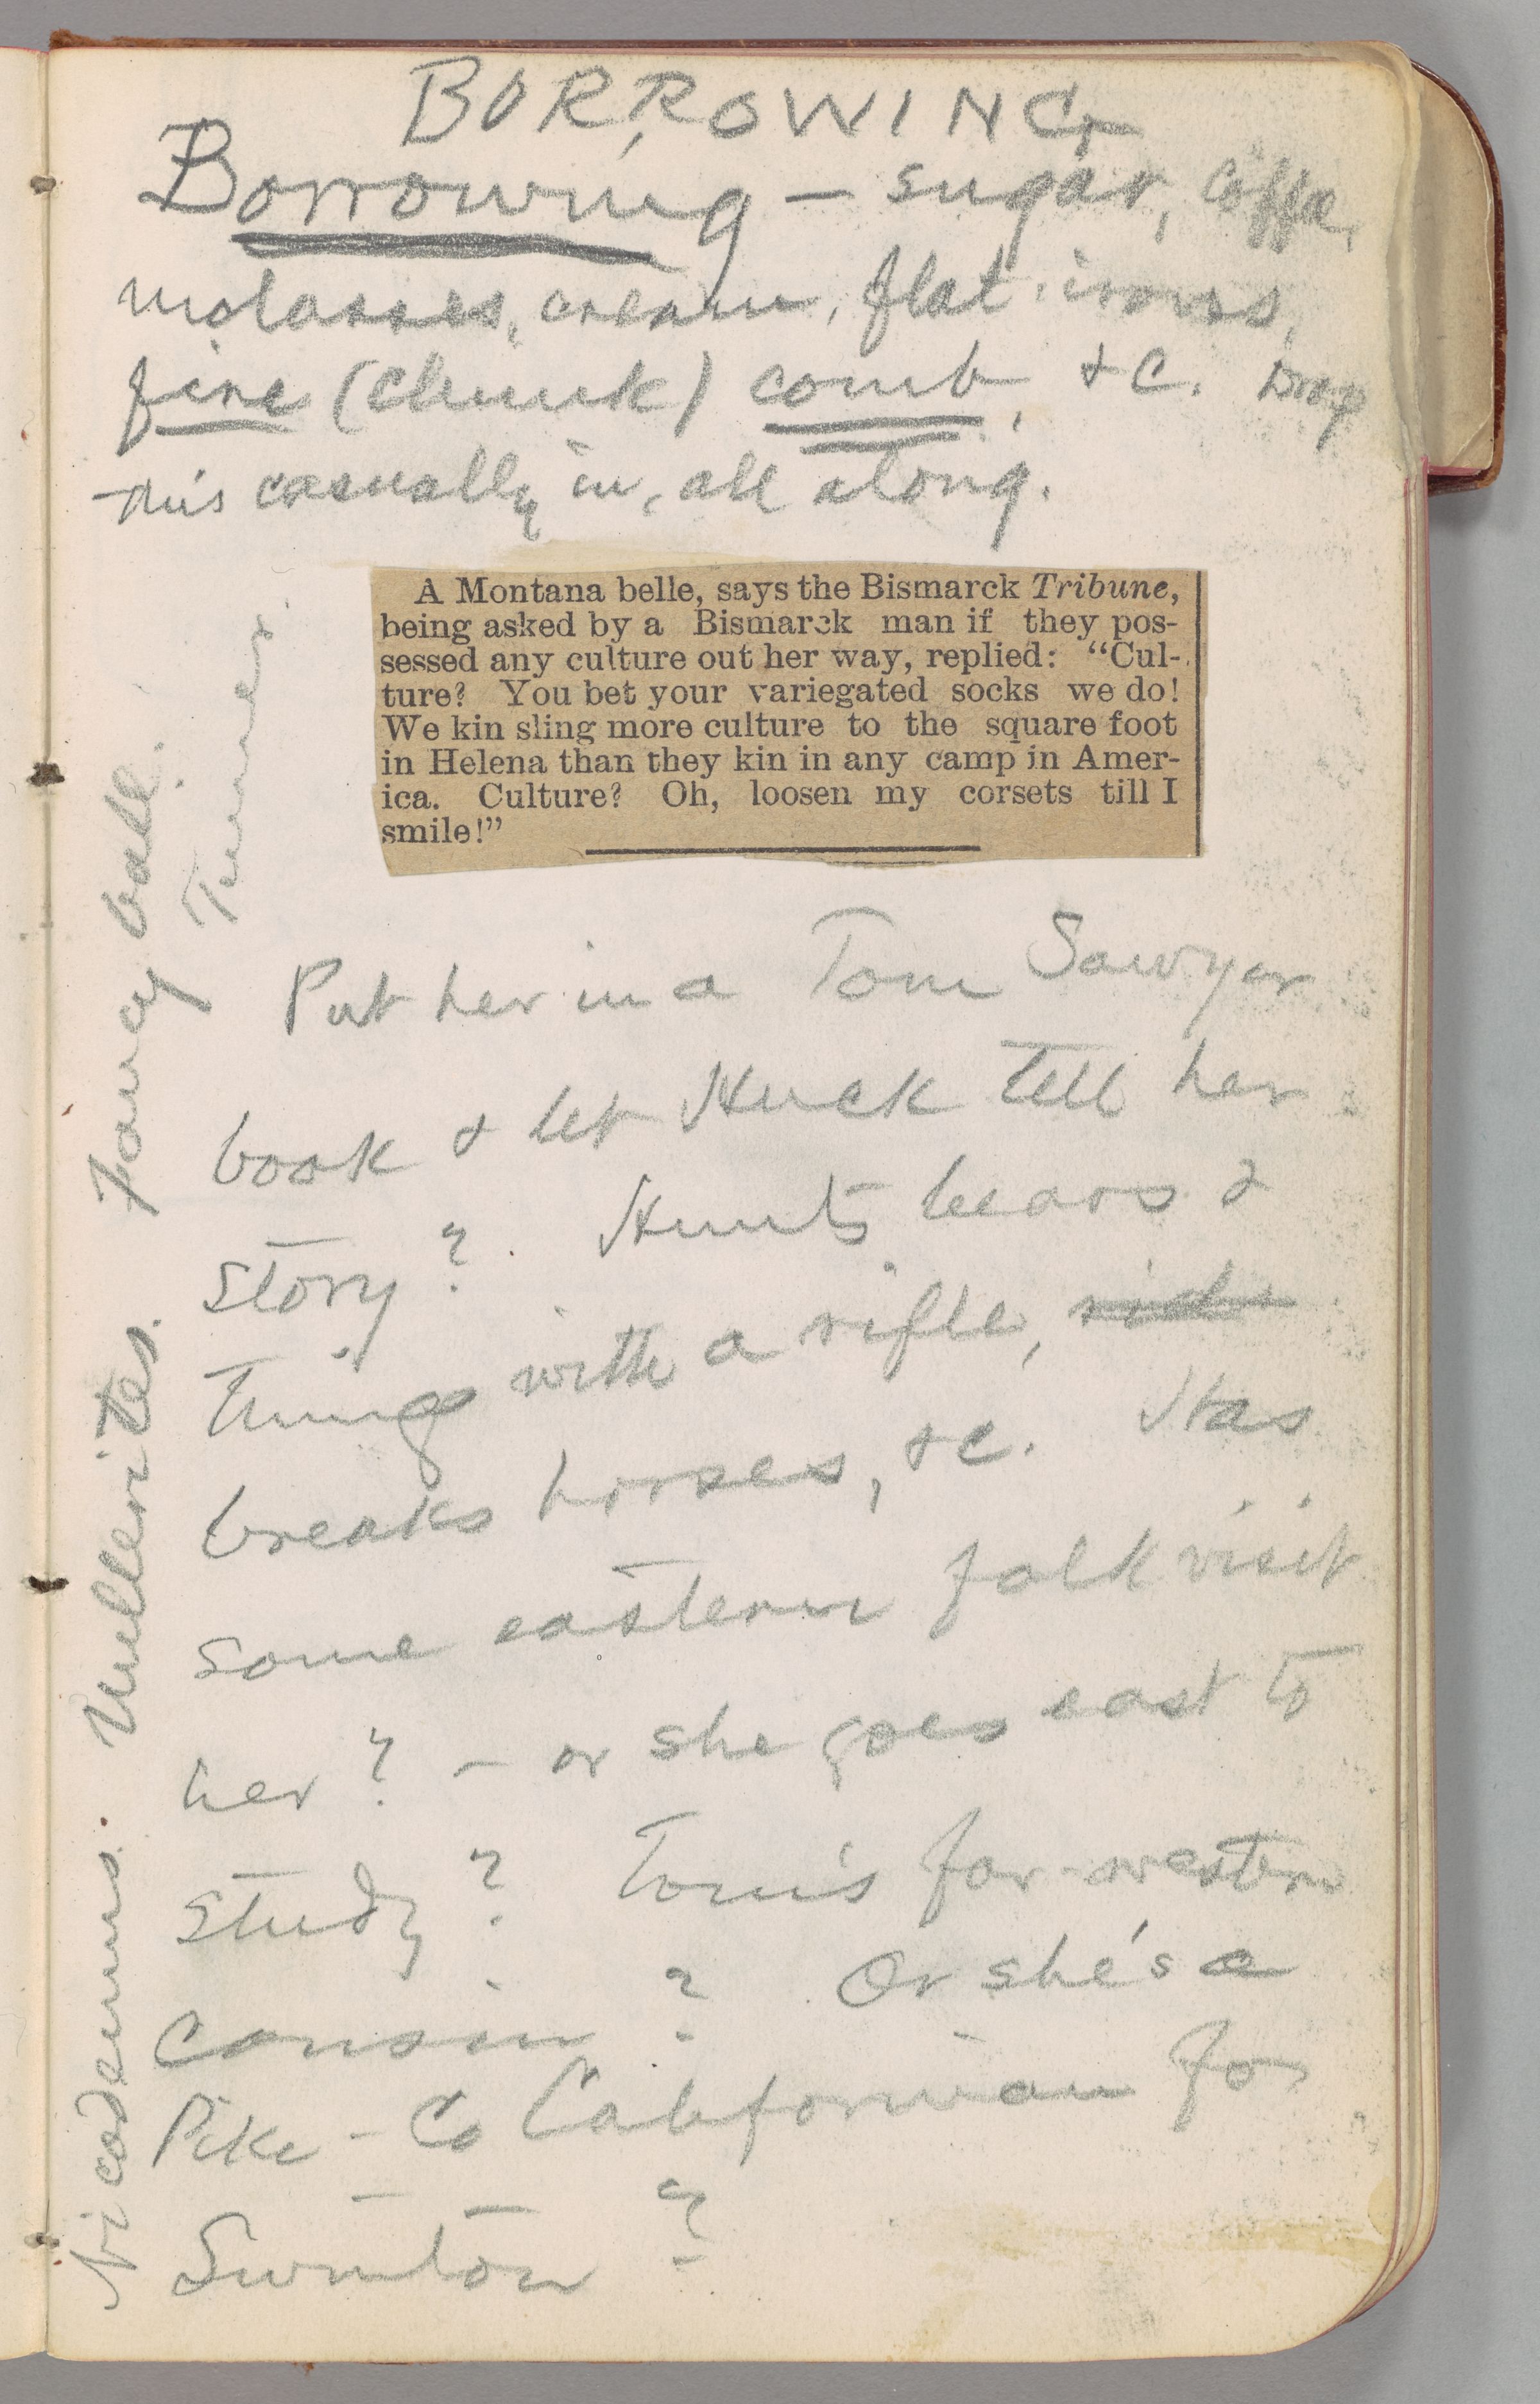 BORROWING
Borrowing — sugar, coffee,
molasses, cream, flat-irons,
fire (chunk) comb, &c. Drop
this casually in, all along.
A Montana belle, says the Bismarck Tribune,
being asked by a Bismarck man if they pos-
sessed any culture out her way, replied: “Cul-
ture? You bet your variegated socks we do!
We kin sling more culture to the square foot
in Helena than they kin in any camp in Amer-
ica. Culture? Oh, loosen my corsets till I
smile!”
Put her in a Tom Sawyer
book & let Huck tell her
story? Hunts bears &
things with a rifle, ride
breaks horses, &c. Has
some eastern folk visit
her? — or she goes east to
study? Tom's far-western
cousin? Or she's a
Pike-Co Californian
Swinton?
Nicodemus. Millerites. Fancy ball.